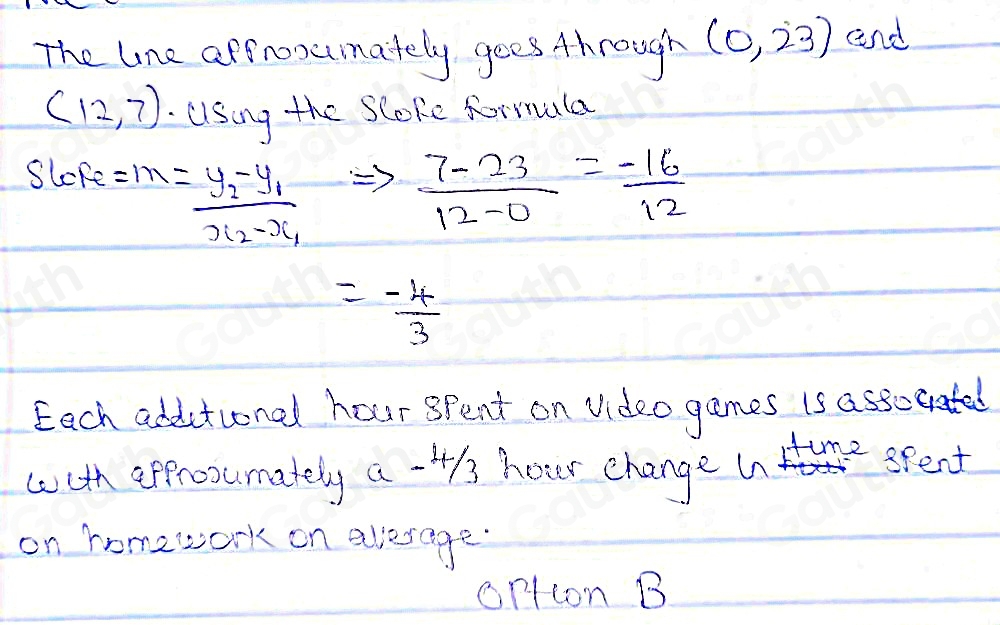 The line approximately goes through (0,23) and
(12,7). Using the slope formula
Slope = m = y₂-y₁ / x₂-x₁ => 7-23 / 12-0 = -16 / 12
= -4 / 3
Each additional hour spent on video games is associated
with approximately a -4/3 hour change in time spent
on homework on average.
Option B